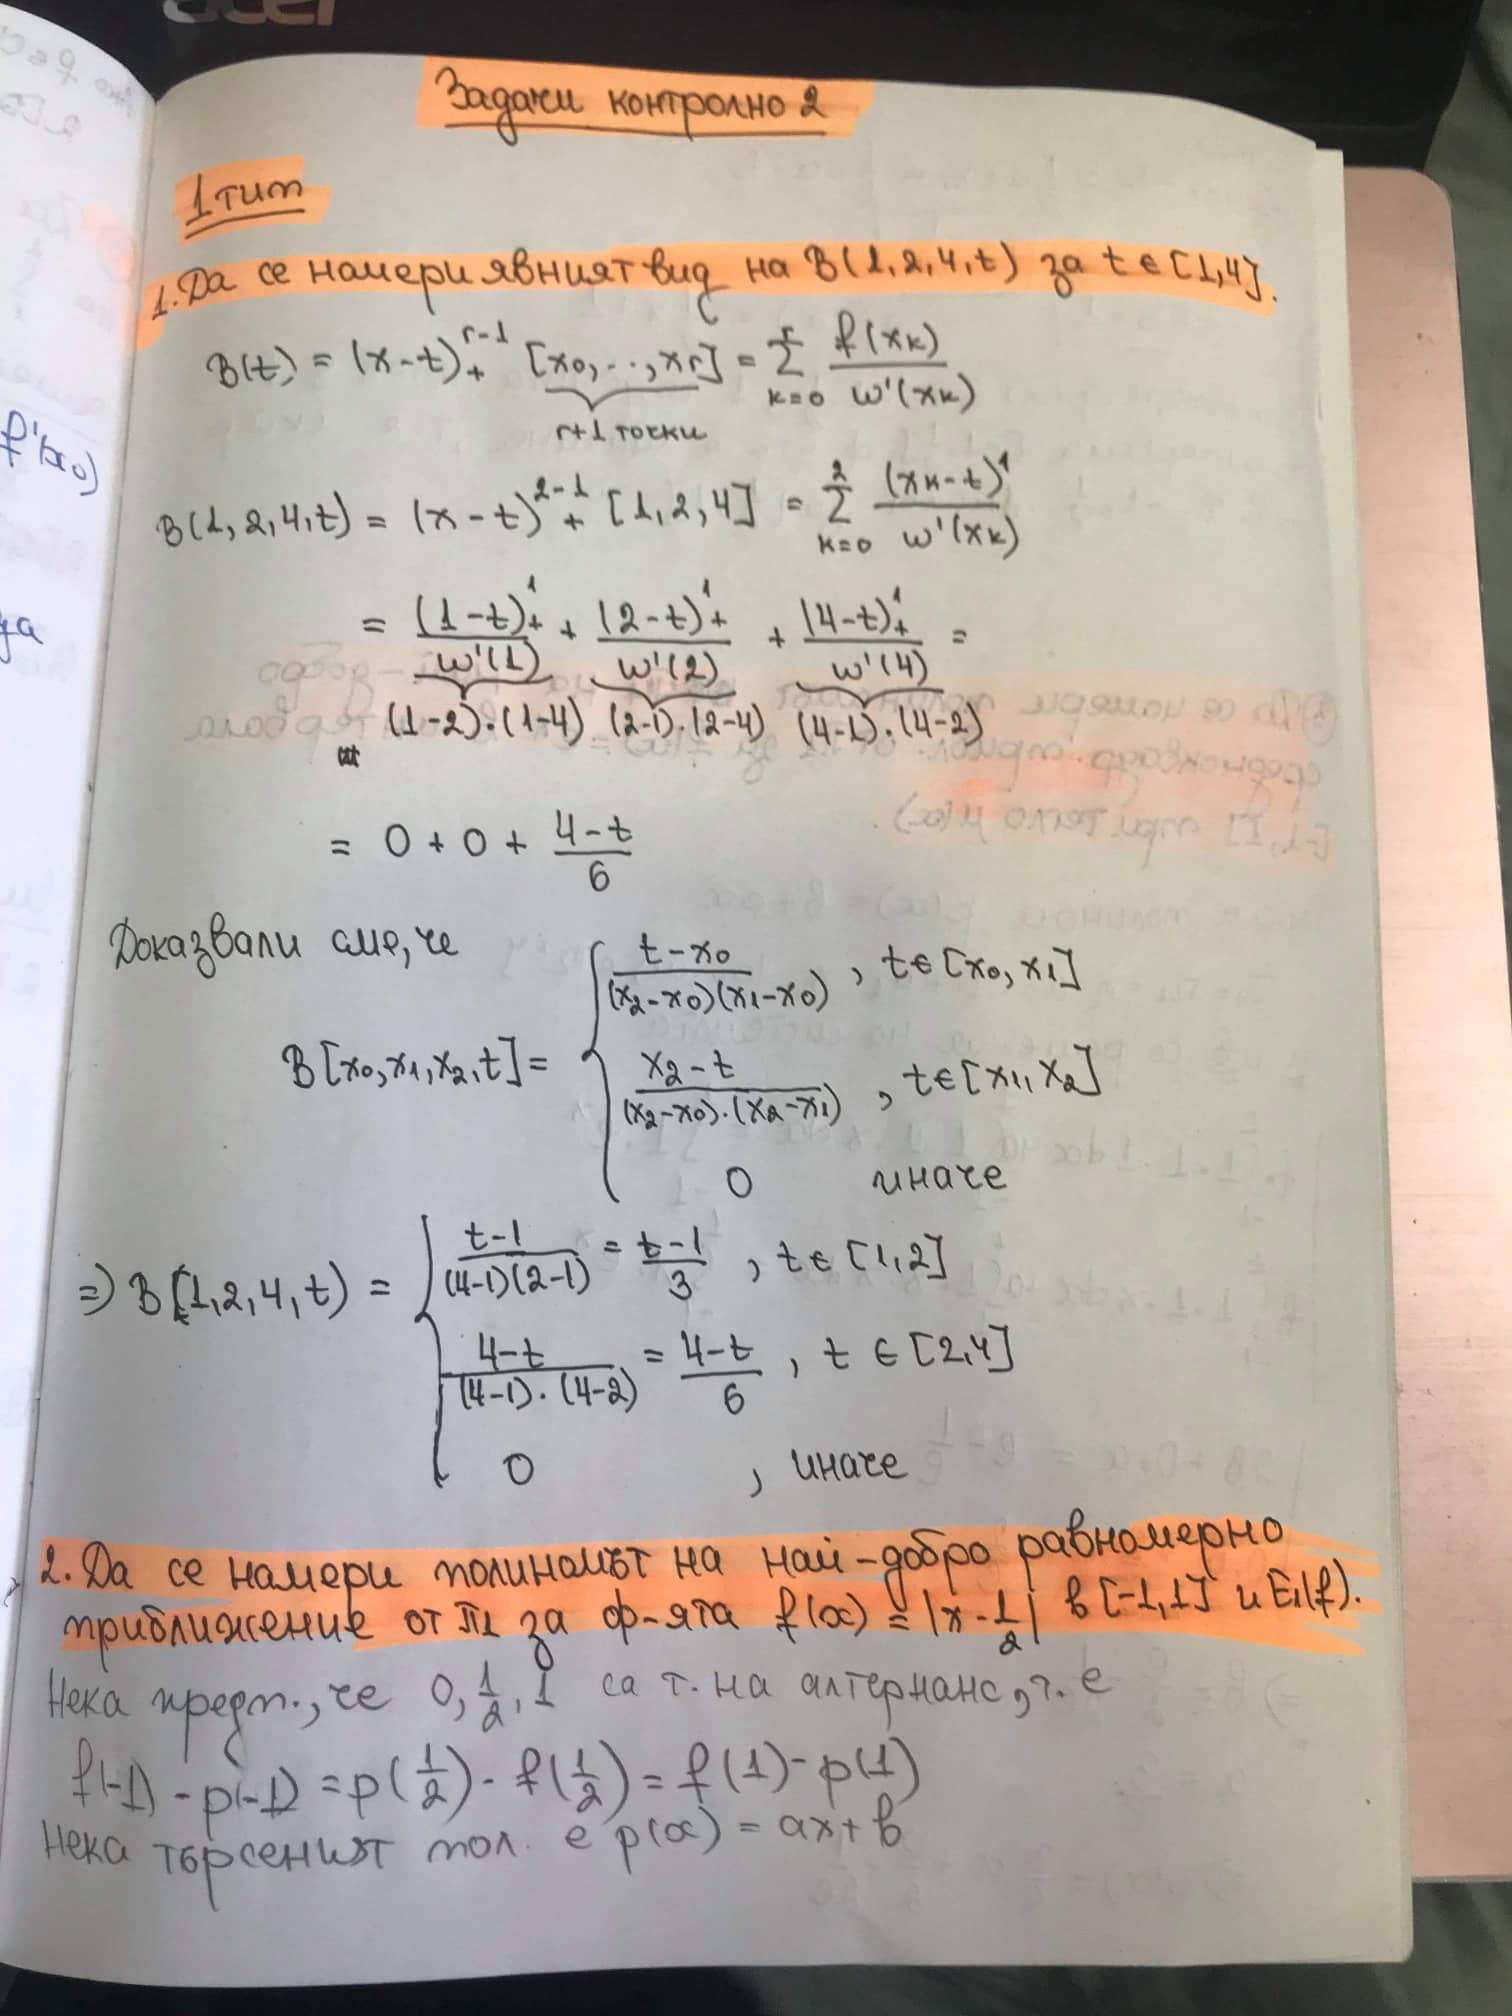 acer
Задачи контролно 2
1 тип
1. Да се намери явният вид на B(1,2,4,t) за t∈[1,4].
B(t) = (x-t)₊^{r-1} [x₀,...,xᵣ] = Σ_{k=0}^{r} f(xₖ)/ω'(xₖ)
r+1 точки
B(1,2,4,t) = (x-t)₊^{2-1} [1,2,4] = Σ_{k=0}^{2} (xₖ-t)¹/ω'(xₖ)
= (1-t)₊¹/ω'(1) + (2-t)₊¹/ω'(2) + (4-t)₊¹/ω'(4) =
(1-2).(1-4) (2-1).(2-4) (4-1).(4-2)
= 0 + 0 + (4-t)/6
Доказвали сме, че
B[x₀,x₁,x₂,t] = { (t-x₀)/((x₂-x₀)(x₁-x₀)), t∈[x₀,x₁]
(x₂-t)/((x₂-x₀).(x₂-x₁)), t∈[x₁,x₂]
0 иначе
⇒ B(1,2,4,t) = { (t-1)/((4-1)(2-1)) = (t-1)/3, t∈[1,2]
(4-t)/((4-1).(4-2)) = (4-t)/6, t∈[2,4]
0, иначе
2. Да се намери полиномът на най-добро равномерно
приближение от π₁ за ф-ята f(x) = |x-1/2| в [-1,1] и E₁(f).
Нека предп., че 0, 1/2, 1 са т. на алтернанс, т. е
f(-1) - p(-1) = p(1/2) - f(1/2) = f(1) - p(1)
Нека търсеният пол. е p(x) = ax+b
f'(x₀)
за